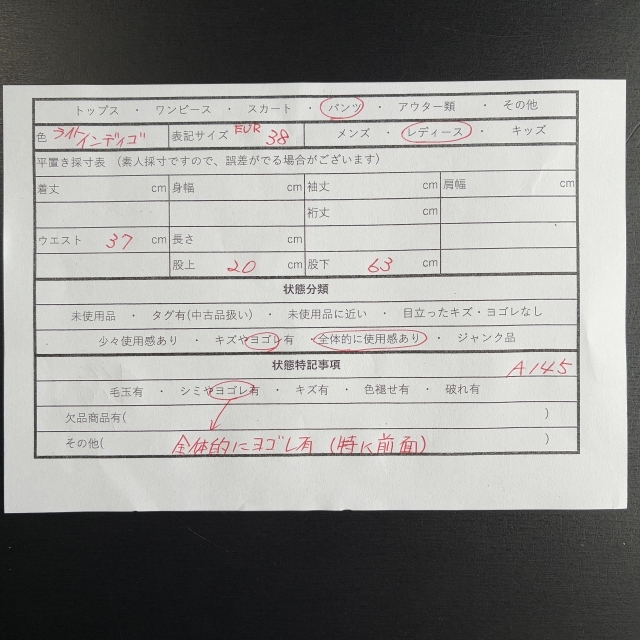 トップス ・ ワンピース ・ スカート ・ パンツ ・ アウター類 ・ その他
色 ライトインディゴ 表記サイズ EUR 38 メンズ ・ レディース ・ キッズ
平置き採寸表 (素人採寸ですので、誤差がでる場合がございます)
着丈 cm 身幅 cm 袖丈 cm 肩幅 cm
裄丈 cm
ウエスト 37 cm 長さ cm
股上 20 cm 股下 63 cm
状態分類
未使用品 ・ タグ有(中古品扱い) ・ 未使用品に近い ・ 目立ったキズ・ヨゴレなし
少々使用感あり ・ キズやヨゴレ有 ・ 全体的に使用感あり ・ ジャンク品
状態特記事項 A145
毛玉有 ・ シミやヨゴレ有 ・ キズ有 ・ 色褪せ有 ・ 破れ有
欠品商品有( )
その他( 全体的にヨゴレ有 (特に前面) )